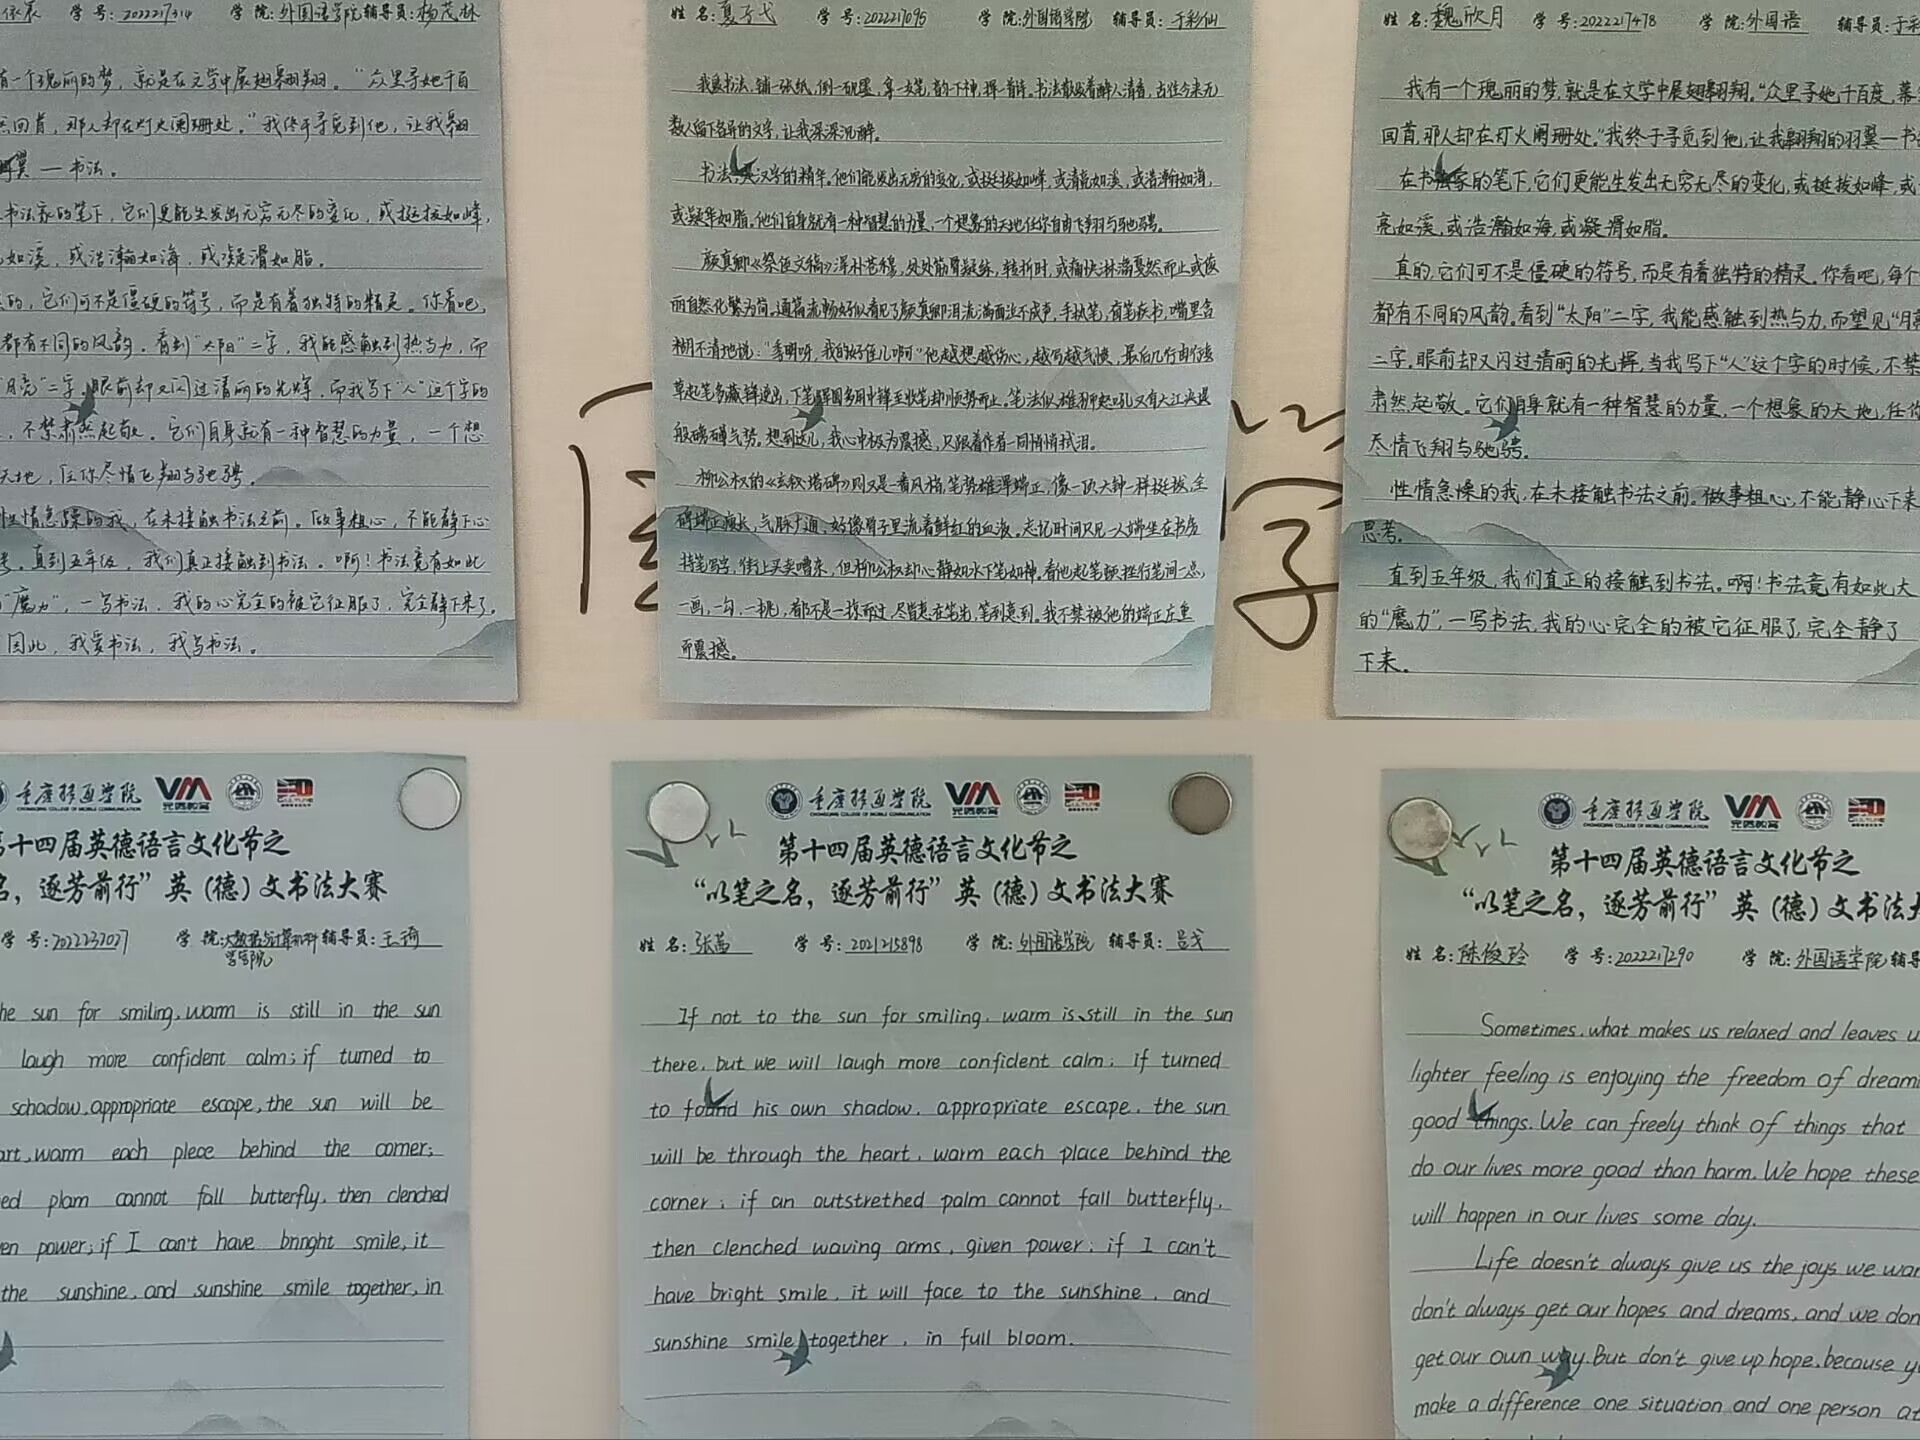 学 号:2022217314 学 院:外国语学院 辅导员:杨茂林
有一个瑰丽的梦，就是在文学中展翅翱翔。“众里寻她千百
回首，那人却在灯火阑珊处。”我终于寻觅到他，让我翱
翼一书法。
书法家的笔下，它们更能生发出无穷无尽的变化，或挺拔如峰，
如溪，或浩瀚如海，或凝滑如脂。
的，它们可不是僵硬的符号，而是有着独特的精灵。你看吧，
都有不同的风韵。看到“太阳”二字，我能感触到热与力，而
“月亮”二字，眼前却又闪过清丽的光辉。而我写下“人”这个字的
，不禁肃然起敬。它们自身就有一种智慧的力量，一个想
天地，任你尽情飞翔与驰骋。
性情急燥的我，在未接触书法之前。做事粗心，不能静下心
考。直到五年级，我们真正接触到书法。啊！书法竟有如此
“魔力”，一写书法，我的心完全的被它征服了，完全静下来了。
因此，我爱书法，我写书法。
姓 名:夏子戈 学 号:2022217095 学 院:外国语学院 辅导员:于彩仙
我爱书法，铺一张纸，倒一砚墨，拿一支笔，韵下神，挥一首诗。书法散发着醉人清香，古往今来无
数人留下各异的文字，让我深深沉醉。
书法，是汉字的精华。他们能发出无穷的变化，或挺拔如峰，或清亮如溪，或浩瀚如海，
或凝华如脂。他们自身就有一种智慧的力量，一个想象的天地任你自由飞翔与驰骋。
颜真卿《祭侄文稿》浑朴苍穆，处处筋骨凝练，转折时，或痛快淋漓戛然而止或
自然化繁为简。通篇流畅好似看见了颜真卿泪流满面泣不成声，手执笔，奋笔疾书，嘴里含
糊不清地说：“季明呀，我的好侄儿啊”他越想越伤心，越写越气愤，最后几行由行
草起笔多藏锋逆出，下笔
般磅礴气势。想到这儿，我心中极为震撼，只跟着作者一同悄悄拭泪。
柳公权的《玄秘塔碑》则又是一番风格，笔势雄浑端正，像一顶大钟一样挺拔，全
碑端正 气脉 好像骨子里流着鲜红的血液。忘记时间只见一人端坐在书房
持笔写字，街上买卖嘈杂，但柳公权却心静如水下笔如神。看他起笔顿挫行笔间一点，
一画，一勾，一挑，都不是一掠而过，尽皆意在笔先，笔到意到。我不禁被他的端正庄重
而震撼。
姓 名:魏欣月 学 号:2022217478 学 院:外国语 辅导员:于彩
我有一个瑰丽的梦，就是在文学中展翅翱翔。“众里寻她千百度，蓦
回首，那人却在灯火阑珊处。”我终于寻觅到他，让我翱翔的羽翼一书
在书法家的笔下，它们更能生发出无穷无尽的变化，或挺拔如峰，或
亮如溪，或浩瀚如海，或凝滑如脂。
真的，它们可不是僵硬的符号，而是有着独特的精灵。你看吧，每个
都有不同的风韵。看到“太阳”二字，我能感触到热与力，而望见“月
二字，眼前却又闪过清丽的光辉，当我写下“人”这个字的时候，不禁
肃然起敬。它们自身就有一种智慧的力量，一个想象的天地，任你
尽情飞翔与驰骋。
性情急燥的我，在未接触书法之前。做事粗心，不能静心下来
思考。
直到五年级，我们真正的接触到书法。啊！书法竟有如此大
的“魔力”，一写书法，我的心完全的被它征服了，完全静了
下来。
学
重庆移通学院 VM
第十四届英德语言文化节之
名，逐芳前行”英（德）文书法大赛
学 号:2022237027 学 院:大数据与计算机科学学院 辅导员:王琦
the sun for smiling, warm is still in the sun
laugh more confident calm; if turned to
schadow, appropriate escape, the sun will be
art, warm each plece behind the corner;
ed plam cannot fall butterfly, then clenched
ven power; if I can't have bnnght smile, it
the sunshine, and sunshine smile together, in
重庆移通学院 VM
CHONGQING COLLEGE OF MOBILE COMMUNICATION
第十四届英德语言文化节之
“以笔之名，逐芳前行”英（德）文书法大赛
姓 名:张茜 学 号:2021215898 学 院:外国语学院 辅导员:吕戈
If not to the sun for smiling, warm is still in the sun
there, but we will laugh more confident calm; If turned
to found his own shadow, appropriate escape, the sun
will be through the heart, warm each place behind the
corner; if an outstrethed palm cannot fall butterfly,
then clenched waving arms, given power; if I can't
have bright smile, it will face to the sunshine, and
sunshine smile together, in full bloom.
重庆移通学院 VM
CHONGQING COLLEGE OF MOBILE COMMUNICATION
第十四届英德语言文化节之
“以笔之名，逐芳前行”英（德）文书法大
姓 名:陈俊玲 学 号:2022217290 学 院:外国语学院 辅
Sometimes, what makes us relaxed and leaves u
lighter feeling is enjoying the freedom of dream
good things. We can freely think of things that
do our lives more good than harm. We hope these
will happen in our lives some day.
Life doesn't always give us the joys we wan
don't always get our hopes and dreams, and we don
get our own way. But don't give up hope, because y
make a difference one situation and one person at